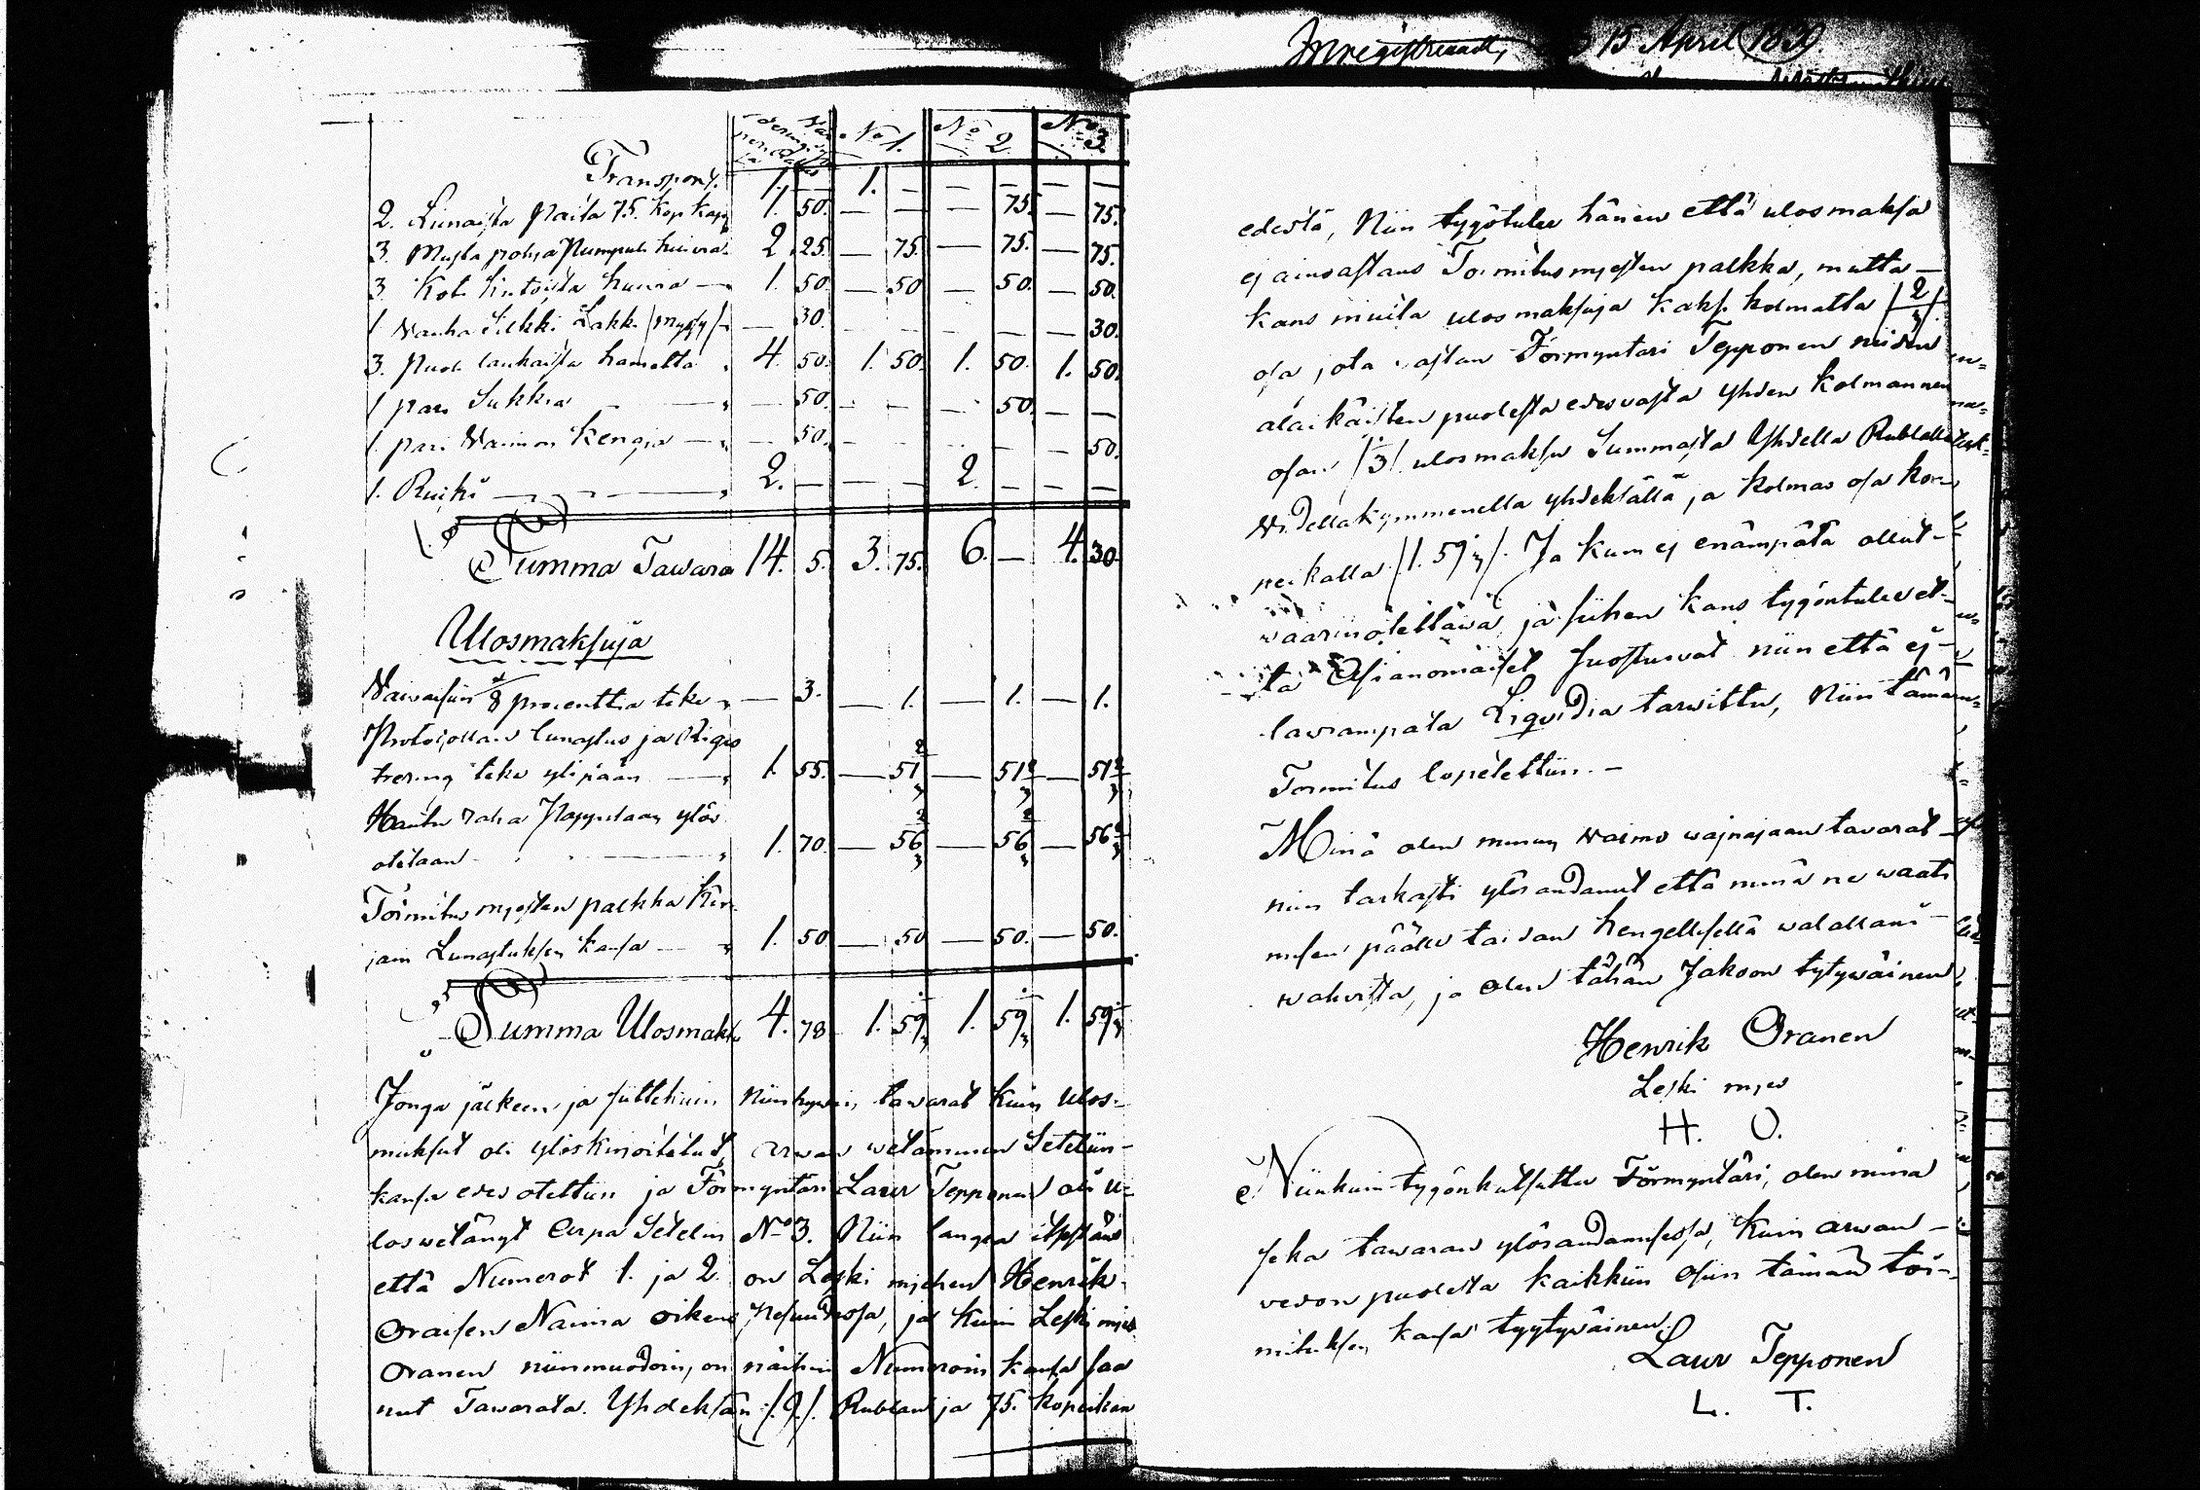 Inregistreradt, 15 April 1839.
No 1. No 2. No 3.
Transport. 1. — 1. — — — — —
2. Liinaista Paita 75. Kop Kapp 1. 50. — — — 75. — 75.
3. Musta pohja Pumpuli huivia 2. 25. — 75. — 75. — 75.
3. Koti Kutoista huivia — 1. 50. — 50 — 50. — 50.
1 Wanha Silkki Lakki /myssy/ — 30. — — — — — 30.
3. Puoli lankaista hametta 4. 50. 1. 50. 1. 50. 1. 50.
1 pari Sukkia — — 50. — — — 50. — —
1. pari Waimon Kengiä — — 50. — — — — — 50.
1. Ruiki — 2. — — — 2. — — —
Summa Tawara 14. 5. 3. 75. 6. — 4. 30.
Ulosmaksuja
Waivaisiin 1/8 prosenttia teke — 3. — 1. — 1. — 1.
Protocollan lunastus ja Regis
trering teke ylipään — 1. 55. — 51 2/3 — 51 2/3 — 51 2/3
Hauta raha Pappilaan ylös
otetaan — 1. 70. — 56 2/3 — 56 2/3 — 56 2/3
Toimitus miesten palkka Kir
jain Lunastuksen kansa — 1. 50 — 50 — 50. — 50.
Summa Ulosmaksu 4. 78 1. 59 1/3 1. 59 1/3 1. 59 1/3
Jonga jälkeen ja sittekuin niinhywin tawarat kuin Ulos-
maksut oli ylöskirjoitetut, arwan wetäminen Setelin-
kansa edes otettiin ja Förmyntäri Laur Tepponen oli u-
loswetänyt Arpa Setelin No 3. Niin langea itsestäns
että Numerot 1. ja 2. on Leski miehen Henrik
Oraisen Naima oikeus Pesuudesa, ja kuin Leski mies
Oranen niinmuodoin, on näihin Numeroin kansa saa
nut Tawarata Yhdeksän /:9:/ Rublan ja 75. kopeikan
edestä, Niin tygötulee hänen että ulosmaksa
ej ainoastans Toimitusmiesten palkka, mutta —
kans muita ulosmaksuja kaksi kolmatta /2/3/
osa, jota vastan Förmyntäri Tepponen niiden
alaikäisten puolesta edesvasta yhden kolmannen
osan /1/3/ ulosmaksu Summasta Yhdellä Rublalla
Widelläkymmenellä yhdeksällä ja kolmas osa ko-
peikalla /1. 59 1/3/. Ja kum ej enämpätä ollut
waarinotettawa, ja siihen kans tygöntulevet-
ta Asianomaiset Suostuwat niin että ej-
lawiampata Liqvidia tarwittu, Niin tämän
Toimitus lopetettiin. —
Minä olen minun Waimo wajnajaan tavarat
niin tarkasti ylösandanut että minä ne waati
misen päälle taidan hengellisellä walallani
wahvista, ja olen tähän Jakoon tytywäinen
Henrik Oranen
Leski mies
H. O.
Niinkuin tygönkutsuttu Förmyntäri, olen minä
seka tawaran ylösandamisessa, kuin arwan-
vedon puolesta kaikkiin osiin tämän toi-
mituksen kansa tyytywäinen.
Laur Tepponen
L. T.